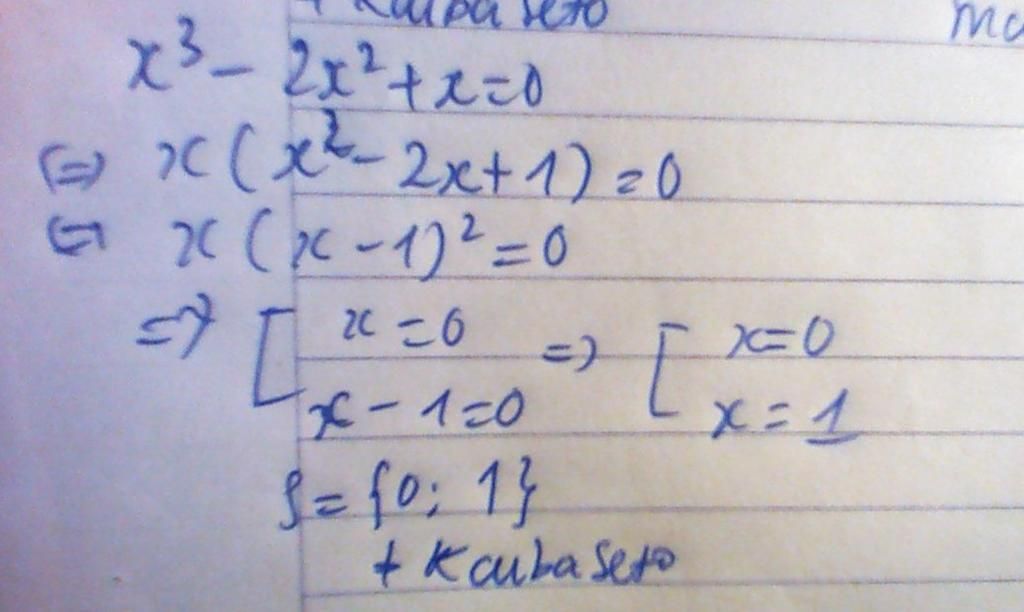 + Kaiba Seto
x³ - 2x² + x = 0
⇔ x(x² - 2x + 1) = 0
⇔ x(x - 1)² = 0
⇒ [ x = 0 ⇒ [ x = 0
x - 1 = 0 x = 1
S = {0; 1}
+ Kaiba Seto